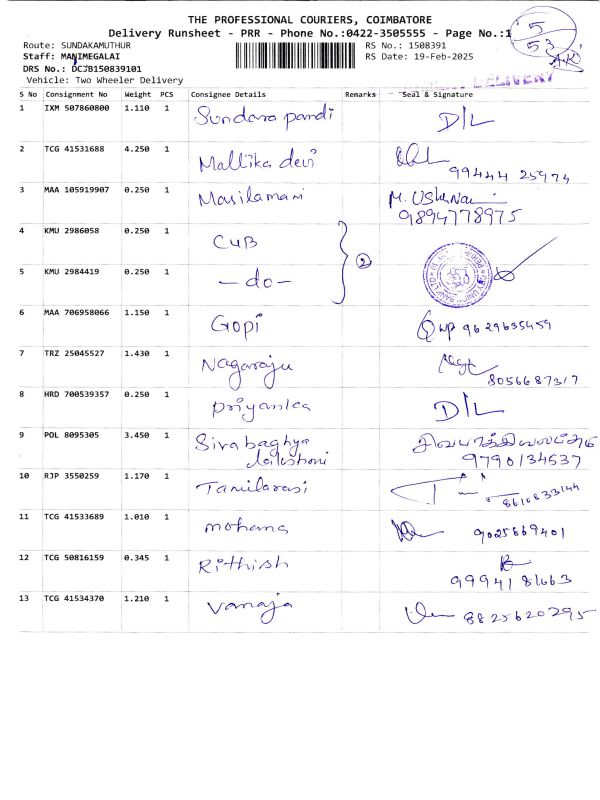 THE PROFESSIONAL COURIERS, COIMBATORE
Delivery Runsheet - PRR - Phone No.:0422-3505555 - Page No.:1
5
53
Route: SUNDAKAMUTHUR
RS No.: 1508391
Staff: MANIMEGALAI
RS Date: 19-Feb-2025
DRS No.: DCJB150839101
Vehicle: Two Wheeler Delivery
DELIVERY
S No Consignment No Weight PCS Consignee Details Remarks Seal & Signature
1 IXM 507860800 1.110 1 Sundara pandi D/L
2 TCG 41531688 4.250 1 Mallika devi
99444 25974
3 MAA 105919907 0.250 1 Masilamani M. Ushanai
9894778975
4 KMU 2986058 0.250 1 CUB
2
5 KMU 2984419 0.250 1 -do-
6 MAA 706958066 1.150 1 Gopi 9629635459
7 TRZ 25045527 1.430 1 Nagaraju
8056687317
8 HRD 700539357 0.250 1 Priyanka D/L
9 POL 8095305 3.450 1 Sivabaghya
lakshmi
9790134537
10 RJP 3550259 1.170 1 Tamilarasi
8610833144
11 TCG 41533689 1.010 1 mohana 9025869401
12 TCG 50816159 0.345 1 Rithish
9994181663
13 TCG 41534370 1.210 1 Vanaja 8825620295